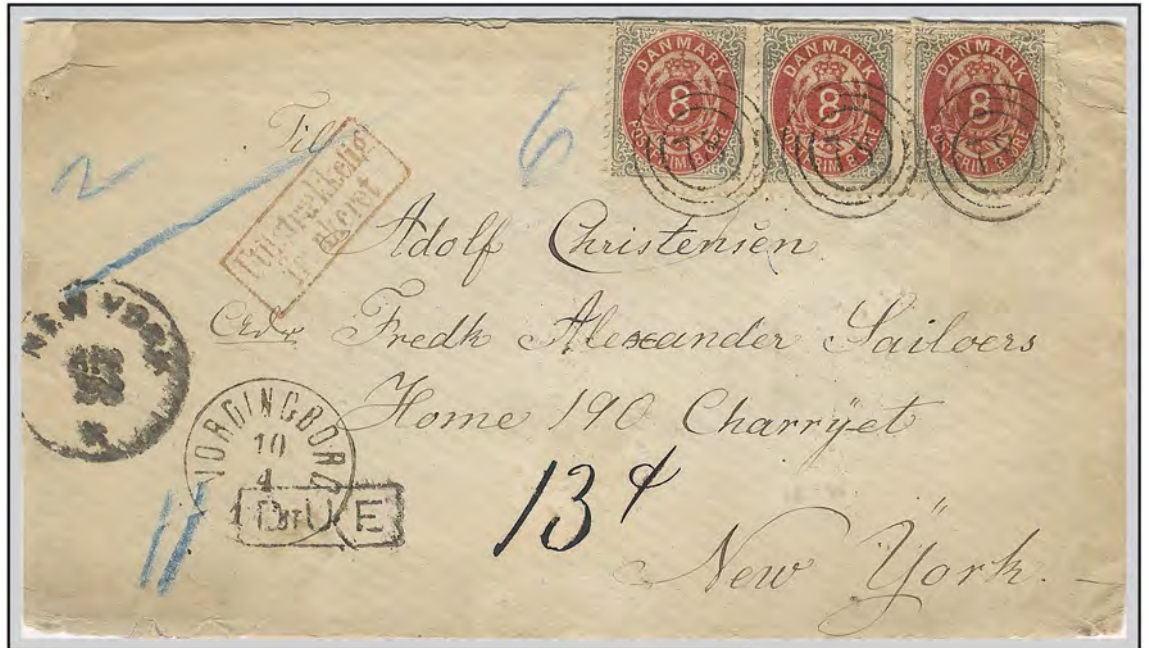 DANMARK 8 POSTFRIM 8 ØRE
DANMARK 8 POSTFRIM 8 ØRE
DANMARK 8 POSTFRIM 8 ØRE
2
6
Til
Utilstrækkelig
frankeret
Adolf Christensen
Fredk Alexander Sailoers
Home 190 Charryet
New Ÿork.
NEW YORK
VORDINGBORG
10
4
DUE
13 ¢